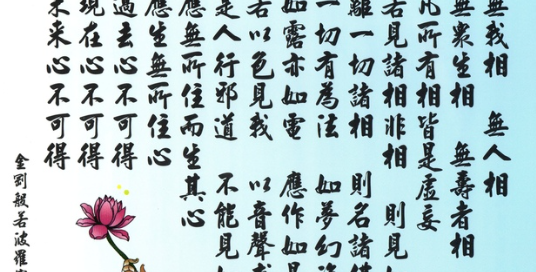 無我相 無人相
無眾生相 無壽者相
凡所有相皆是虛妄
若見諸相非相 則見
離一切諸相 則名諸
一切有為法 如夢幻
如露亦如電 應作如是
若以色見我 以音聲
是人行邪道 不能見
應無所住而生其心
應生無所住心
過去心不可得
現在心不可得
未來心不可得
金剛般若波羅